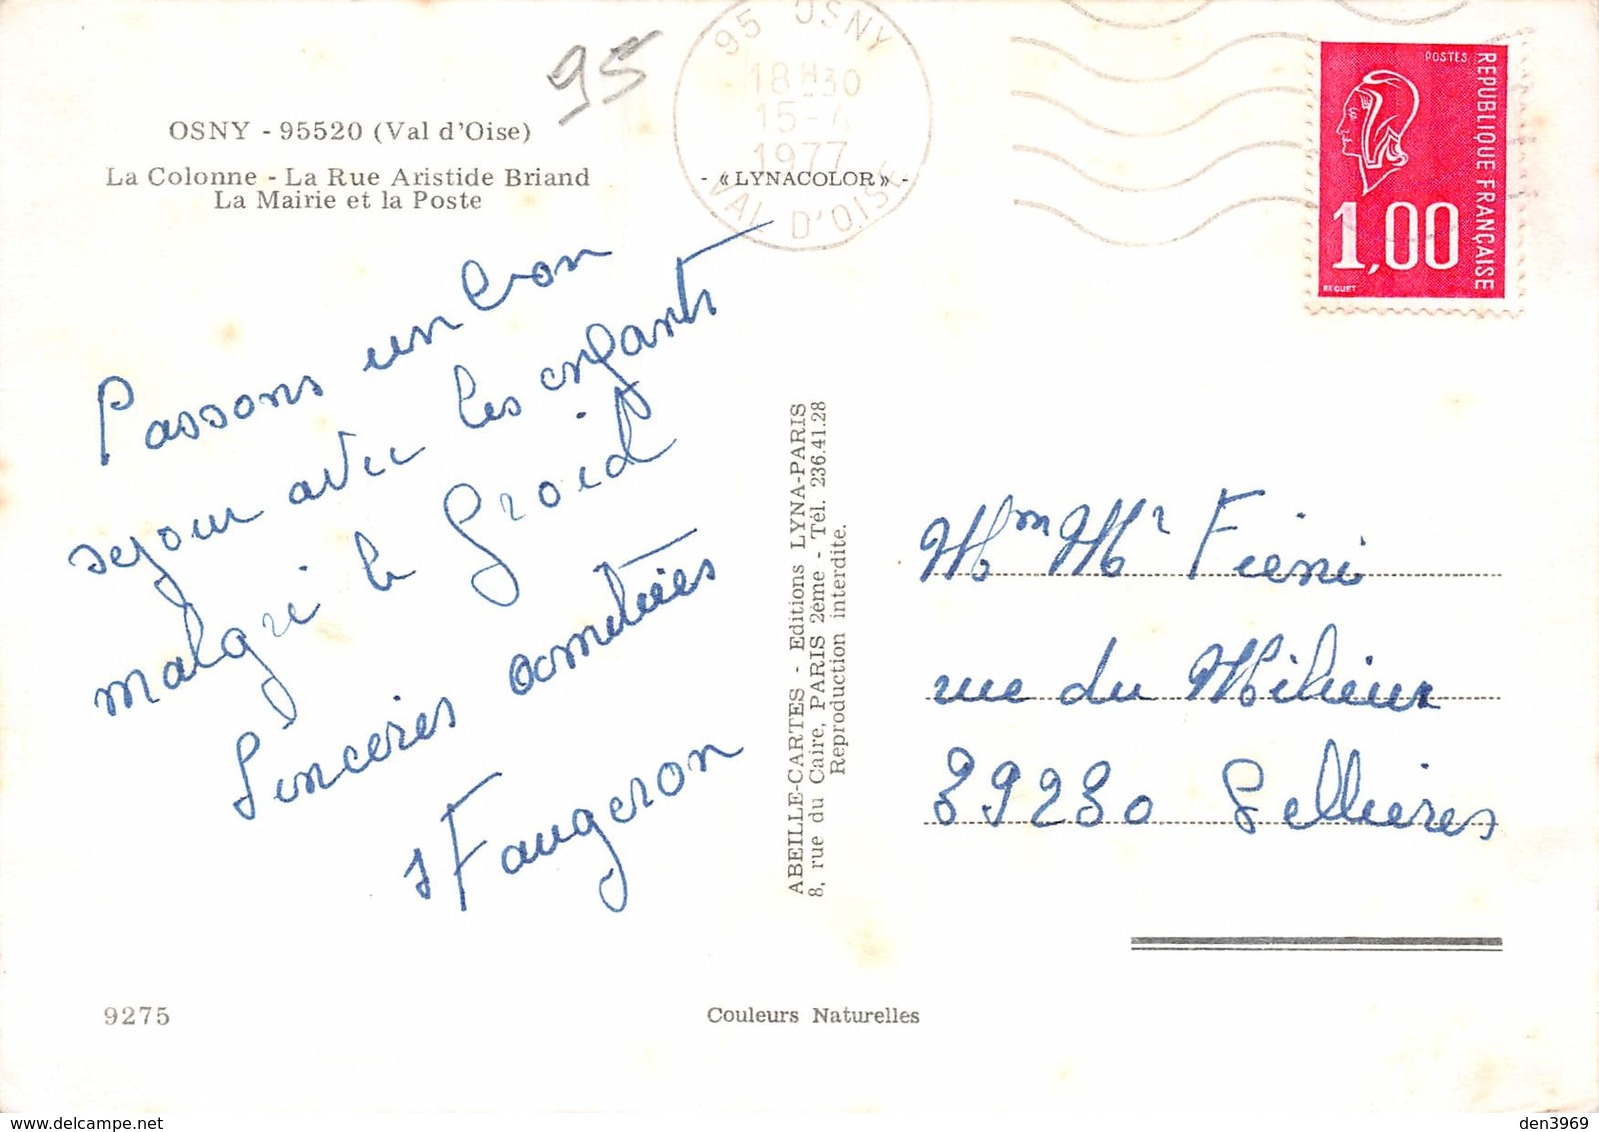 95
OSNY - 95520 (Val d'Oise)
La Colonne - La Rue Aristide Briand
La Mairie et la Poste
95 OSNY
18H30
15-4
1977
VAL D'OISE
- «LYNACOLOR» -
POSTES
REPUBLIQUE FRANÇAISE
1,00
BEQUET
Passons un bon
sejour avec les enfants
malgré le froid
Sinceres amitiées
Faugeron
ABEILLE-CARTES - Editions LYNA-PARIS
8, rue du Caire, PARIS 2ème - Tél. 236.41.28
Reproduction interdite.
Mm Mr Fieni
rue du Milieur
39230 Sellieres
9275
Couleurs Naturelles
den3969